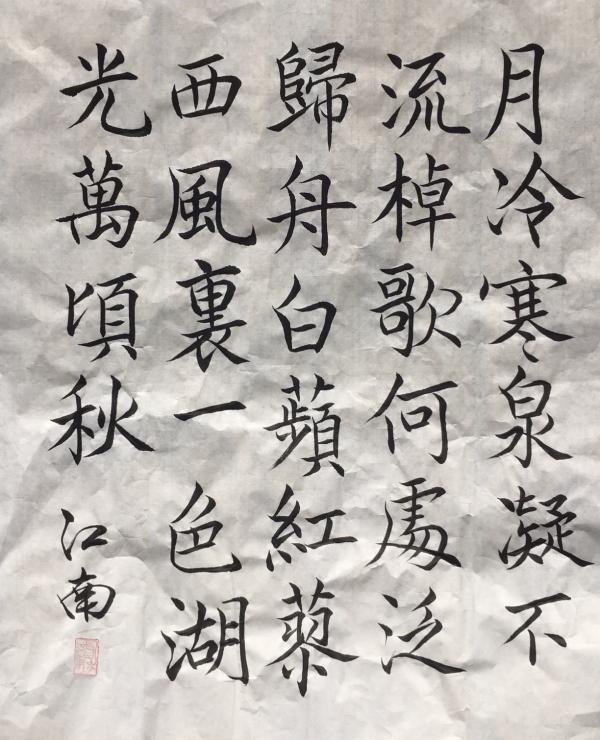 月冷寒泉凝不
流棹歌何處泛
歸舟白蘋紅蓼
西風裏一色湖
光萬頃秋
江南